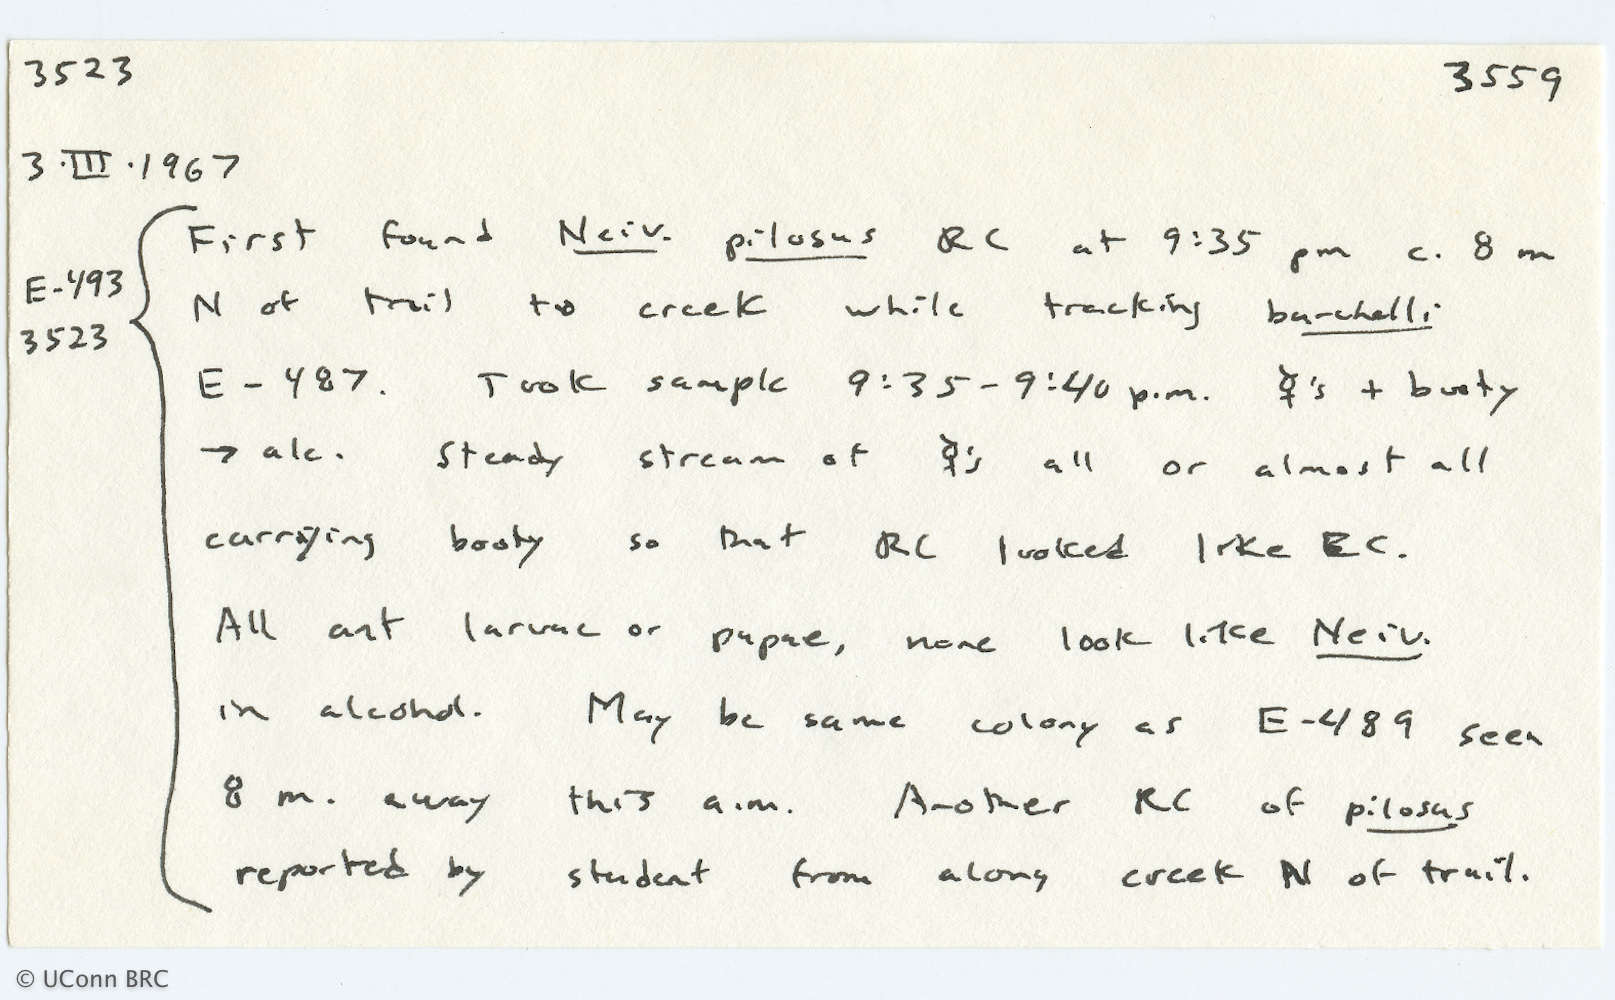 3523 3559
3·III·1967
First found Neiv. pilosus RC at 9:35 pm c. 8 m
E-493
N of trail to creek while tracking burchelli
3523
E-487. Took sample 9:35-9:40 p.m. ☿'s + booty
→ alc. Steady stream of ☿'s all or almost all
carrying booty so that RC looked like EC.
All ant larvae or pupae, none look like Neiv.
in alcohol. May be same colony as E-489 seen
8 m. away this a.m. Another RC of pilosus
reported by student from along creek N of trail.
© UConn BRC